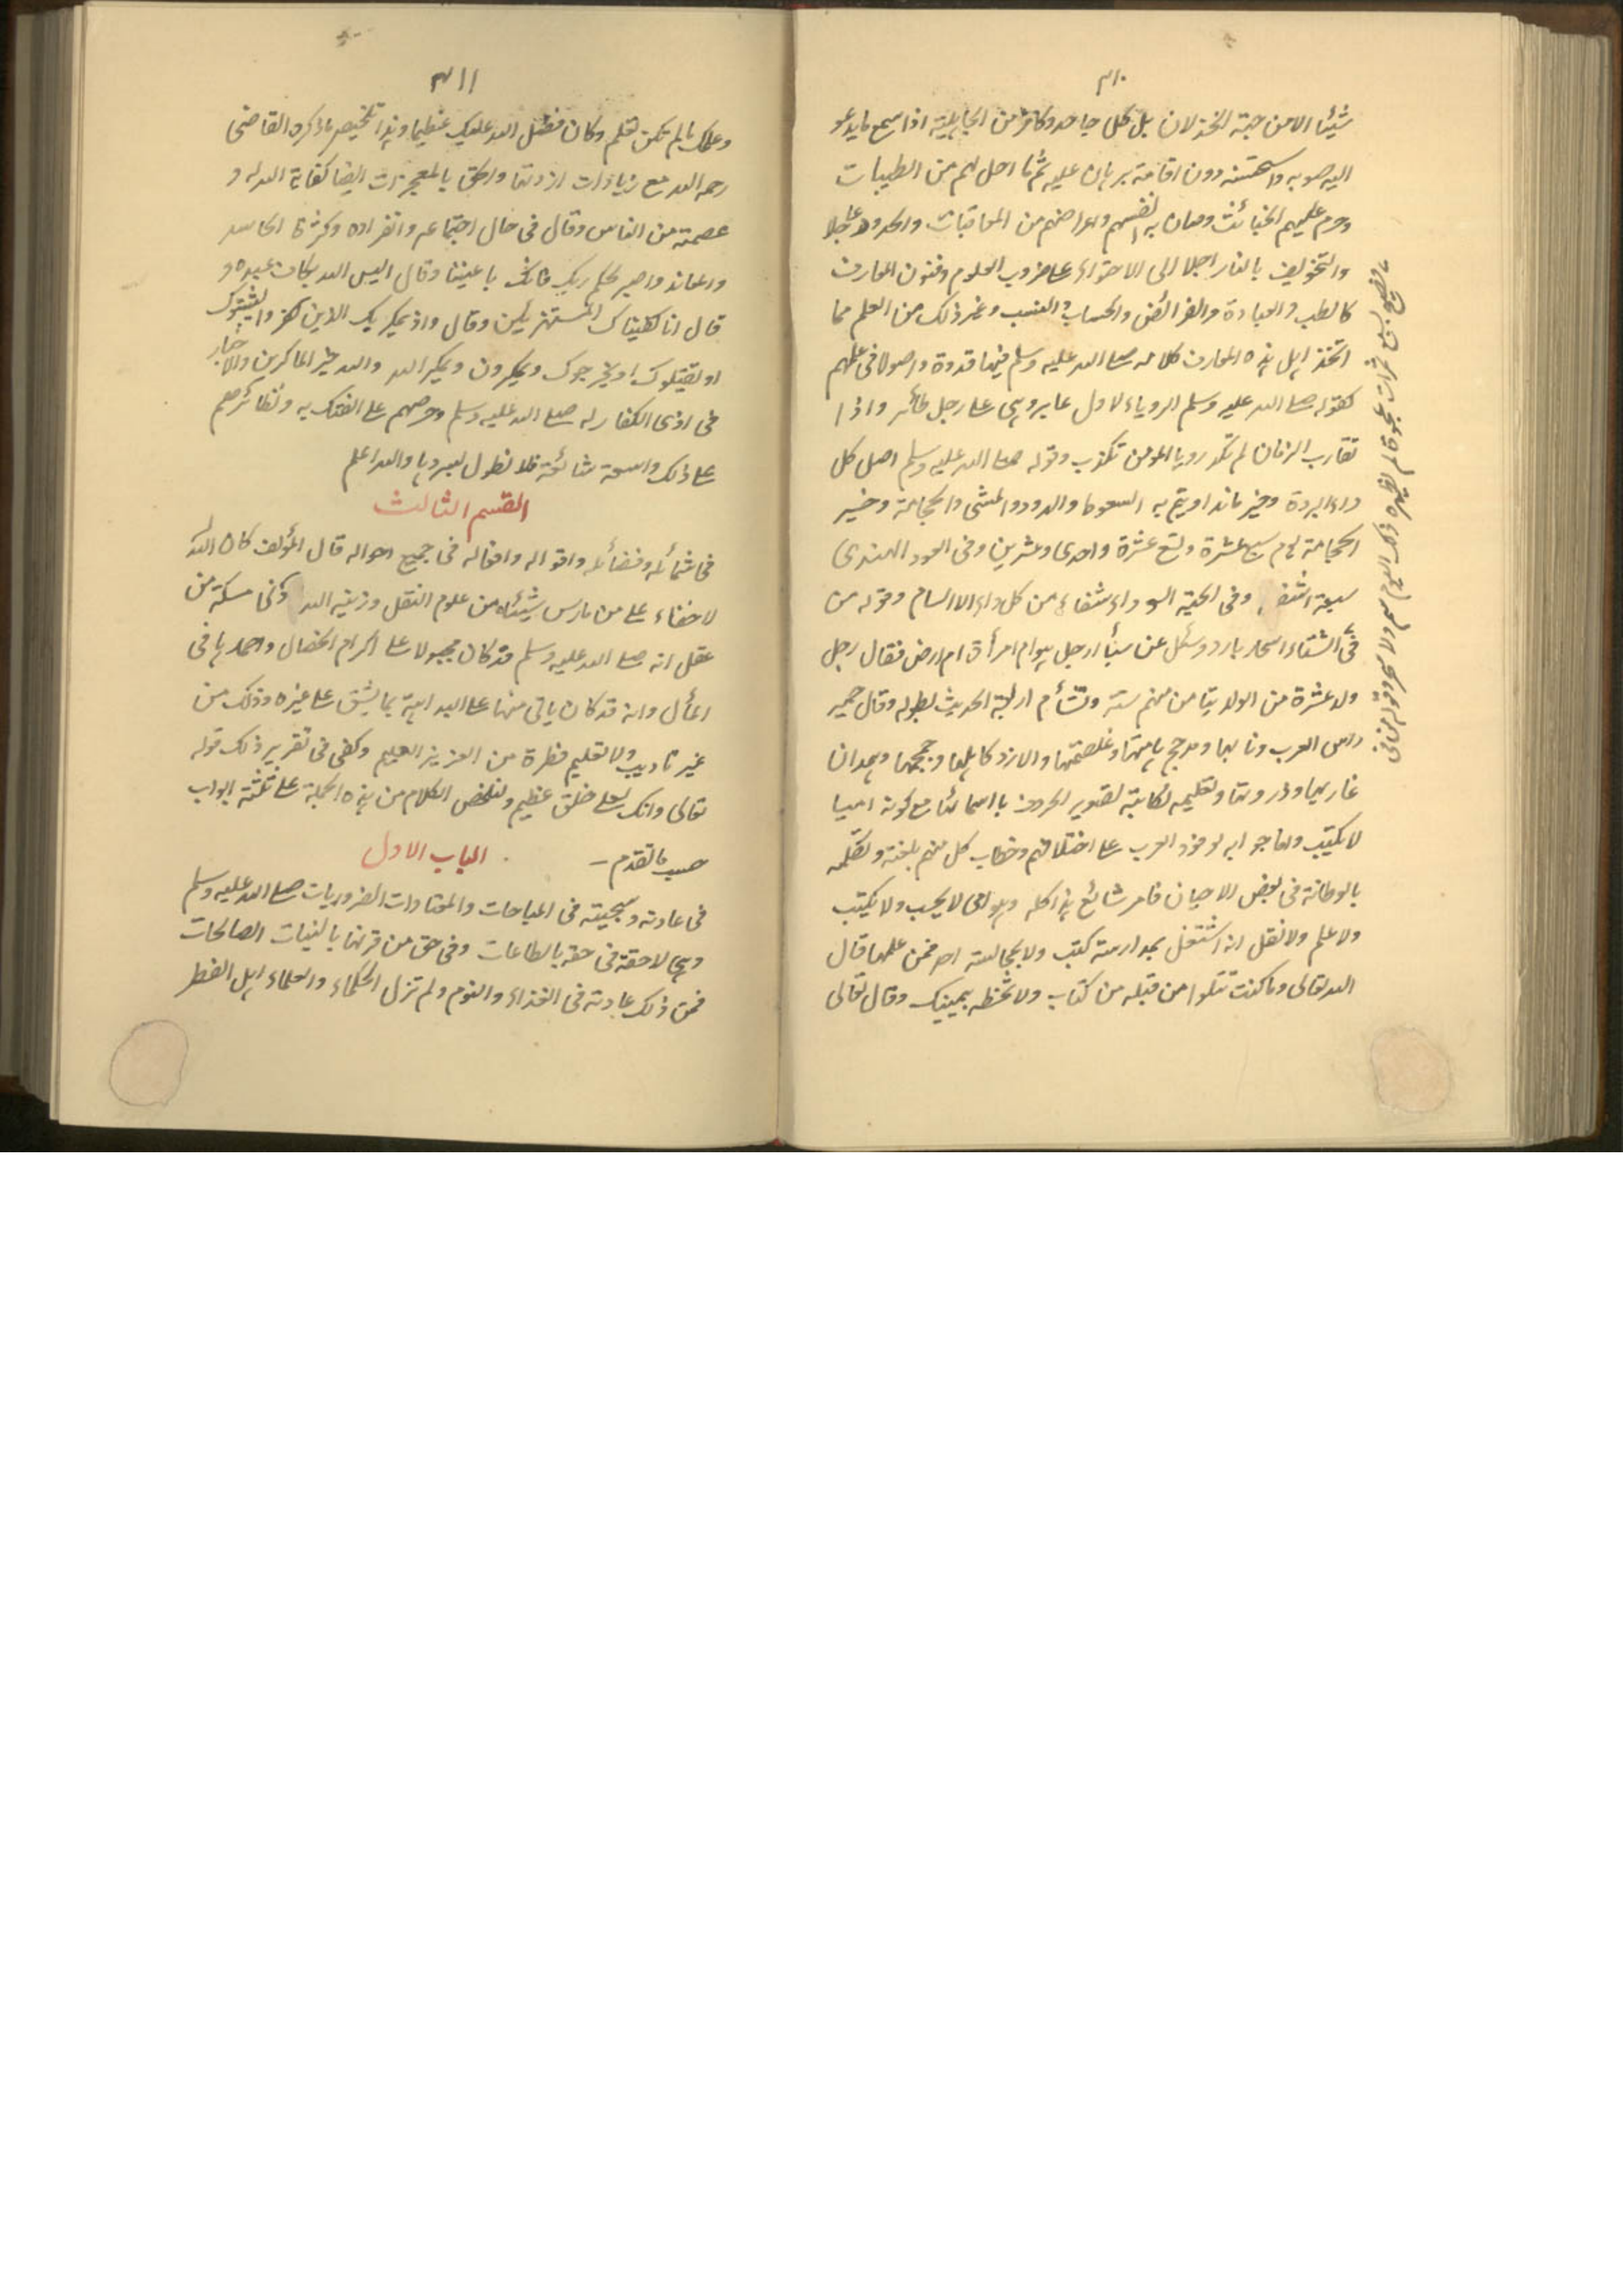 ٣١٠
شيئا الا من جهة الخذلان بل كل جاحد وكافر من الجاهلية اذا سمع ما يدعو
اليه صوبه واستحسنه دون اقامة برهان عليه ثم ما احل لهم من الطيبات
وحرم عليهم الخبائث وصان به انفسهم واعراضهم من المعاقبات والحدود عاجلا
والتخويف بالنار اجلا الى الاحتواء على ضروب العلوم وفنون المعارف
كالطب والعبادة والفرائض والحساب والنسب وغير ذلك من العلم مما
اتخذ اهل هذه المعارف كلامه صلى الله عليه وسلم فيها قدوة واصولا فى علمهم
كقوله صلى الله عليه وسلم الروياء لاول عابر وهى على رجل طائر واذا
تقارب الزمان لم تكد رويا المومن تكذب وقوله صلى الله عليه وسلم اصل كل
داء البردة وخير ما تداويتم به السعوط واللدود والمشى والحجامة وخير
الحجامة يوم سبع عشرة وتسع عشرة واحدى وعشرين وفى العود الهندى
سبعة اشفـ وفى الحبة السوداء شفاء من كل داء الا السام وقوله من
فى الشتاء اسحار بارد وسئل عن سبأ ارجل هو ام امرأة ام ارض فقال رجل
ولد عشرة من الولد تيامن منهم ستة وتشأم اربعة الحديث بطوله وقال حمير
راس العرب ونابها ومذحج هامتها وغلصمتها والازد كاهلها وجمجمها وهمدان
غاربها وذروتها وتعليمه لكاتبه تصوير الحروف باسمائها مع كونه اميا
لا يكتب واما جوابه لوفود العرب على اختلافهم وخطاب كل منهم بلغته وتكلمه
بالوطانة فى بعض الاحيان فامر شائع هذا كله وهو امى لا يحسب ولا يكتب
ولا علم ولا نقل انه اشتغل بمدارسة كتب ولا بمجالسة احد ممن علمها قال
الله تعالى وما كنت تتلوا من قبله من كتاب ولا تخطه بيمينك وقال تعالى
تصبح بسبع تمرات عجوة لم يضره ذلك اليوم سم ولا سحر وقوله من فى
٣١١
وعلمك ما لم تكن تعلم وكان فضل الله عليك عظيما وهذا تلخيص ما ذكره القاضى
رحمه الله مع زيادات ازدتها والحق بالمعجزات ايضا كفاية الله له و
عصمته من الناس وقال فى حال اجتماعه وانفراده وكثرة الحاسد
والمعاند واصبر لحكم ربك فانك باعيننا وقال اليس الله بكاف عبده و
قال انا كفيناك المستهزئين وقال واذ يمكر بك الذين كفروا ليثبتوك
او يقتلوك او يخرجوك ويمكرون ويمكر الله والله خير الماكرين والاخبار
فى اذى الكفار له صلى الله عليه وسلم وحرصهم على الفتك به ونظائرهم
على ذلك واسعة شائعة فلا نطول بسردها والله اعلم
القسم الثالث
فى شمائله وفضائله واقواله وافعاله فى جميع احواله قال المؤلف كان الله له
لا خفاء على من مارس شيئا من علوم النقل وزينه الله مسكة من
عقل انه صلى الله عليه وسلم قد كان مجبولا على اكرام الخصال واحمدها فى
المأل وانه قد كان ياتى منها على البداهة بما يشق على غيره وذلك من
غير تاديب ولا تعليم فطرة من العزيز العليم وكفى فى تقرير ذلك قوله
تعالى وانك لعلى خلق عظيم ولنلخص الكلام من هذه الجملة على ثلثة ابواب
حسب ما تقدم – الباب الاول
فى عادته وسجيته فى المباحات والمعتادات الضروريات صلى الله عليه وسلم
وهى لاحقة فى حقه بالطاعات وفى حق من قرنها بالنيات الصالحات
فمن ذلك عادته فى الغذاء والنوم ولم تزل الحكماء والعلماء اهل الفطر